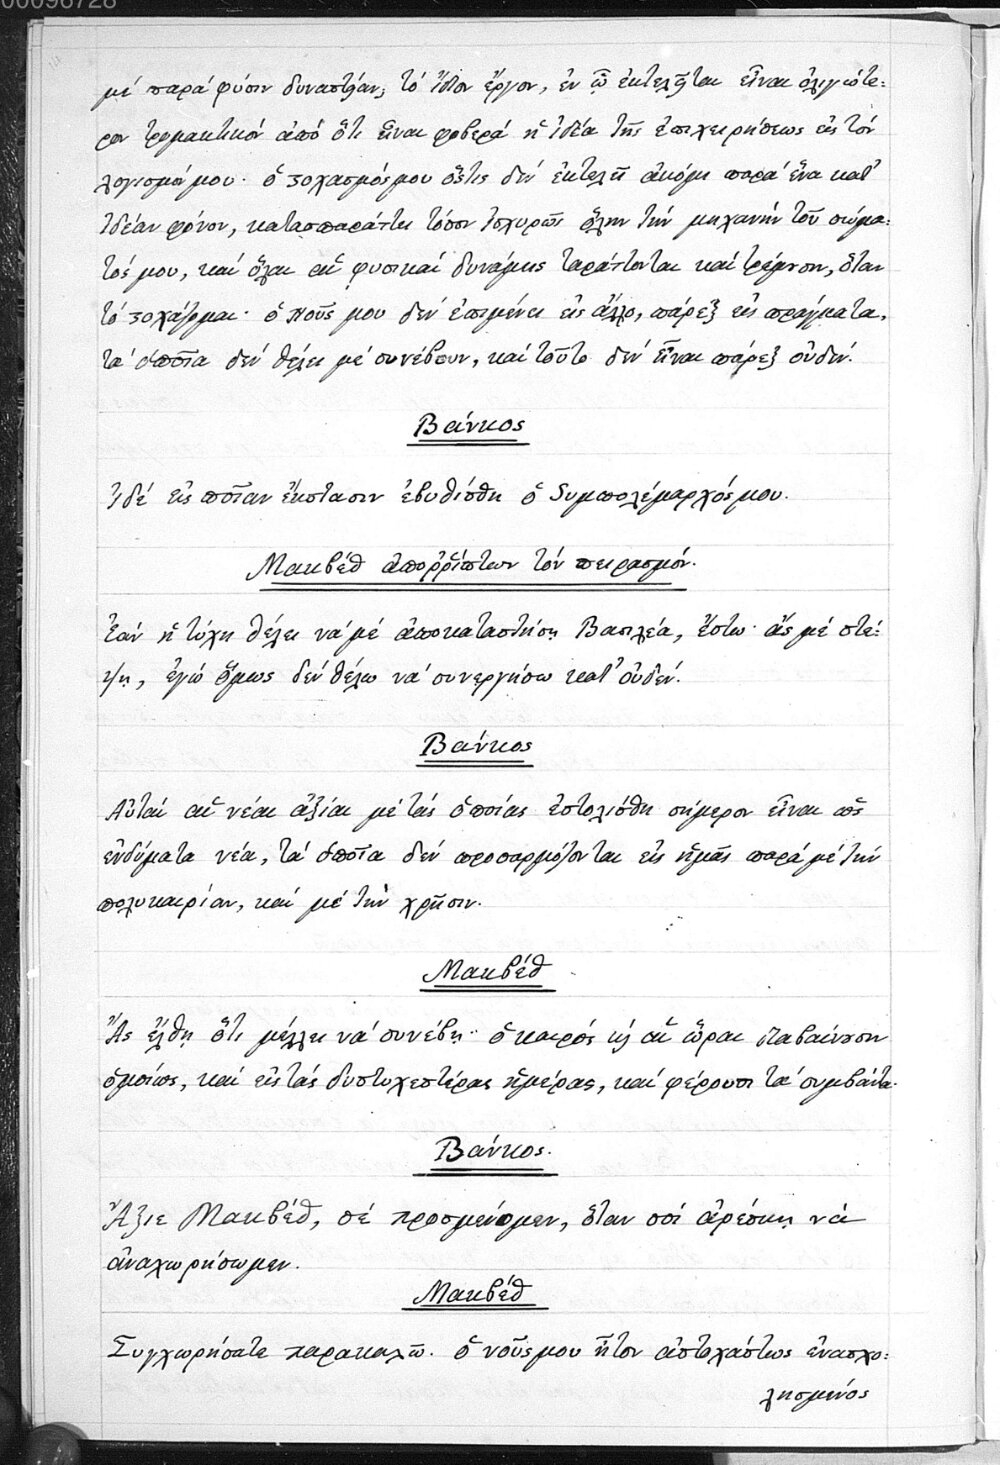 00096728
μέ παρά φύσιν δυναστείαν; τό ἴδιον ἔργον, ἐν ᾧ ἐκτελεῖται εἶναι ὀλιγώτε:
ρον τρομακτικόν ἀπό ὅτι εἶναι φοβερά ἡ ἰδέα τῆς ἐπιχειρήσεως εἰς τόν
λογισμόν μου· ὁ στοχασμός μου ὅστις δέν ἐκτελεῖ ἀκόμη παρά ἕνα κατ'
ἰδέαν φόνον, κατασπαράττει τόσον ἰσχυρῶς ὅλην τήν μηχανήν τοῦ σώμα:
τός μου, καί ὅλαι αἱ φυσικαί δυνάμεις ταράττονται καί τρέμουν, ὅταν
τό στοχάζομαι· ὁ νοῦς μου δέν ἐπιμένει εἰς ἄλλο, πάρεξ εἰς πράγματα,
τά ὁποῖα δέν θέλει μέ συνέβουν, καί τοῦτο δέν εἶναι πάρεξ οὐδέν.
Βάνκος
Ἰδέ εἰς ποῖαν ἔκστασιν ἐβυθίσθη ὁ Συμπολέμαρχός μου.
Μακβέθ ἀποῤῥίπτων τόν πειρασμόν.
Ἐάν ἡ τύχη θέλει νά μέ ἀποκαταστήσῃ Βασιλέα, ἔστω· ἄς μέ στέ:
ψῃ, ἐγώ ὅμως δέν θέλω νά συνεργήσω κατ' οὐδέν.
Βάνκος
Αὗται αἱ νέαι ἀξίαι μέ τάς ὁποίας ἐστολίσθη σήμερον εἶναι ὡς
ἐνδύματα νέα, τά ὁποῖα δέν προσαρμόζονται εἰς ἡμᾶς παρά μέ τήν
πολυκαιρίαν, καί μέ τήν χρῆσιν.
Μακβέθ
Ἄς ἔλθῃ ὅτι μέλλει νά συνέβῃ· ὁ καιρός κ αἱ ὧραι διαβαίνουσιν
ὁμοίως, καί εἰς τάς δυστυχεστέρας ἡμέρας, καί φέρουσι τά συμβάντα.
Βάνκος.
Ἄξιε Μακβέθ, σέ προσμένομεν, ὅταν σοί ἀρέσκῃ νά
ἀναχωρήσωμεν.
Μακβέθ
Συγχωρήσατε παρακαλῶ. ὁ νοῦς μου ἦτον ἀστοχάστως ἐνασχο:
λησμένος